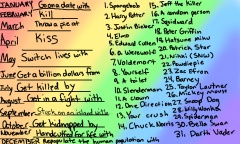 JANUARY Go on a date with
FEBRUARY Kill
March Throw a pie at
April Kiss
May Switch lives with
June Get a billion dollars from
July Get killed by
August Get in a fight with
September Stuck on an island with
October Get kidnapped by
November Handcuffed for life with
DECEMBER Repopulate the human population with
1. Spongebob
2. Harry Potter
3. Justin Bieber
4. Elmo
5. Edward Cullen
6. a Werewolf
7. Voldemort
8. Yourself
9. A toilet
10. Slenderman
11. A clown
12. One Direction
13. Your crush
14. Chuck Norris
15. Jeff the Killer
16. A random person
17. Squidward
18. Peter Griffin
19. Hatsune Miku
20. Patrick Star
22. Pewdiepie
23. Zac Efron
24. Barney
25. Taylor Lautner
27. Snoop Dog
28. Willy Wonka
29. Spiderman
30. Bella Swan
31. Darth Vader